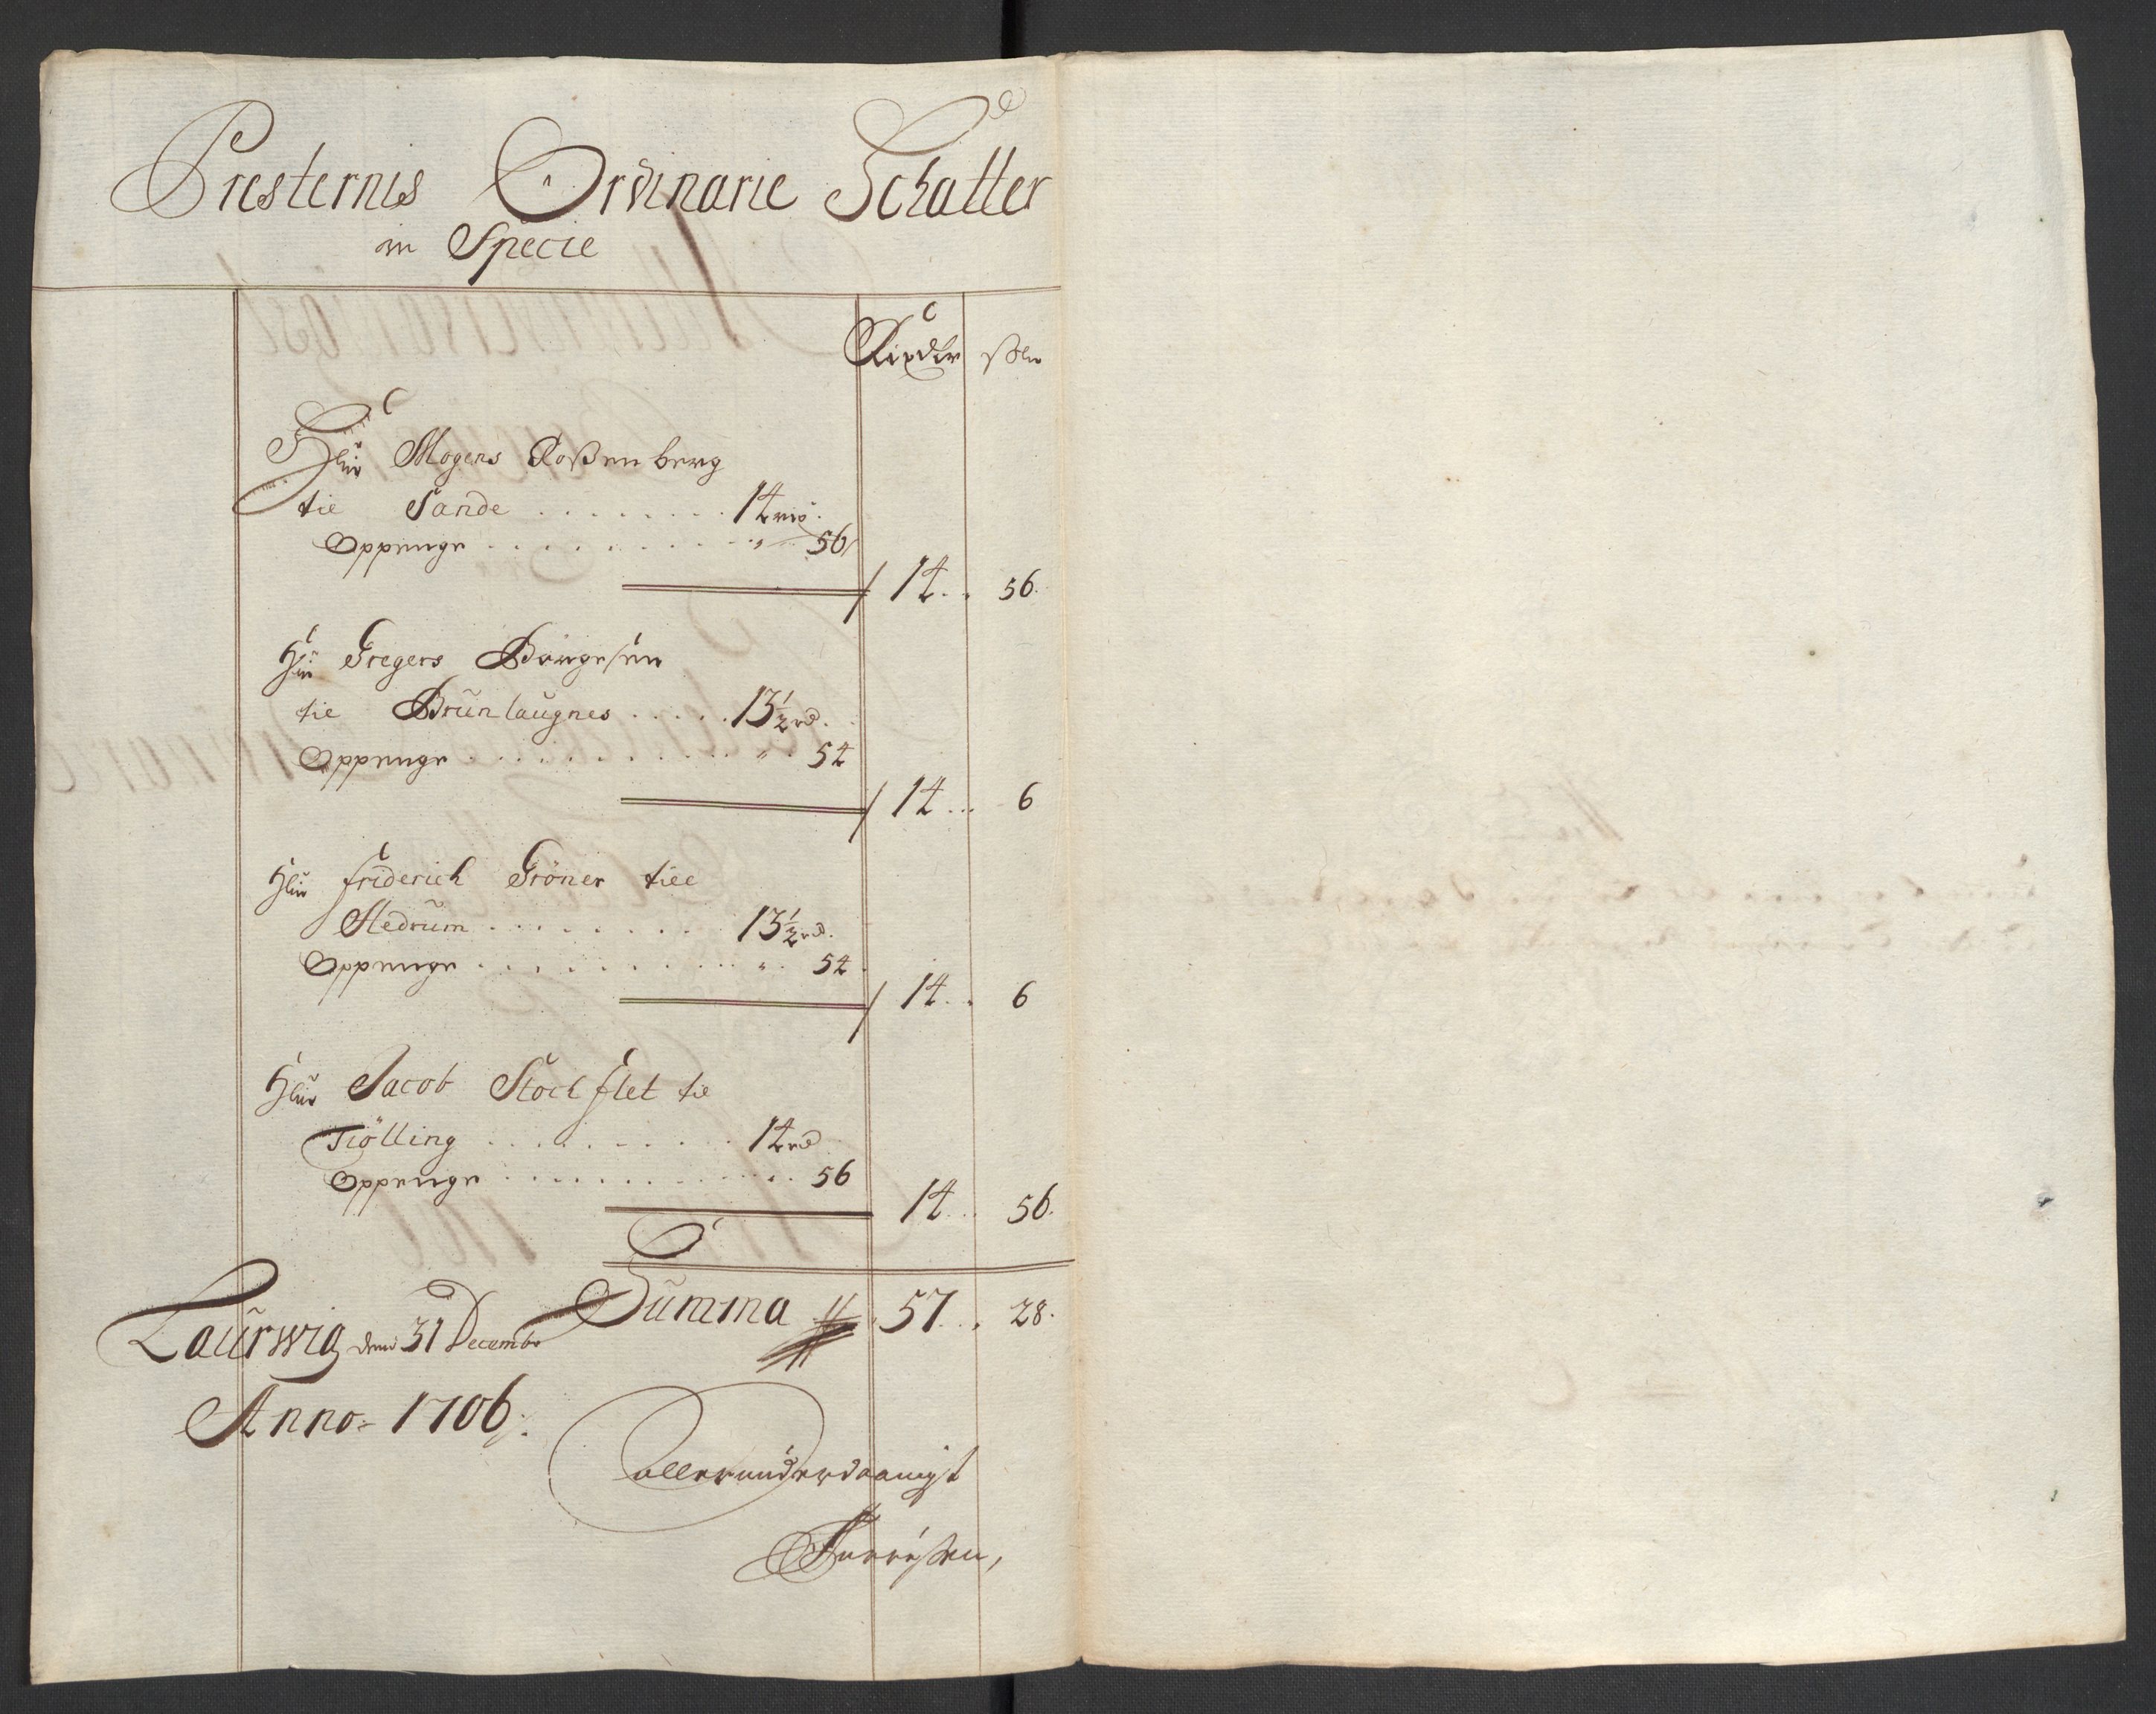 Presternis Ordinarie Schatter
in Specie
Rixdlr ßlr
Hr Mogens Roßenberg
til Sande . . . . . . . . 14 rd.
Oppenge . . . . . . . . . . " . . 56
14 . . 56.
Hr Gregers Börgesen
til Brunlaugnes . . . . . 13½ rd.
Oppenge . . . . . . . . . . . . " . 54
14 . . . 6
Hr Friderich Gröner till
Hedrum . . . . . . . . 13½ rd.
Oppenge . . . . . . . . . . . " . 54
14 . . 6
Hr Jacob Stochflet til
Tiölling . . . . . . . . . 14 rd
Oppenge . . . . . . . . . . . . . . 56
14 . . . 56.
Summa 57 . . . 28.
Laurwig denn 31 Decembr
Anno 1706.
allerunderdaanigst